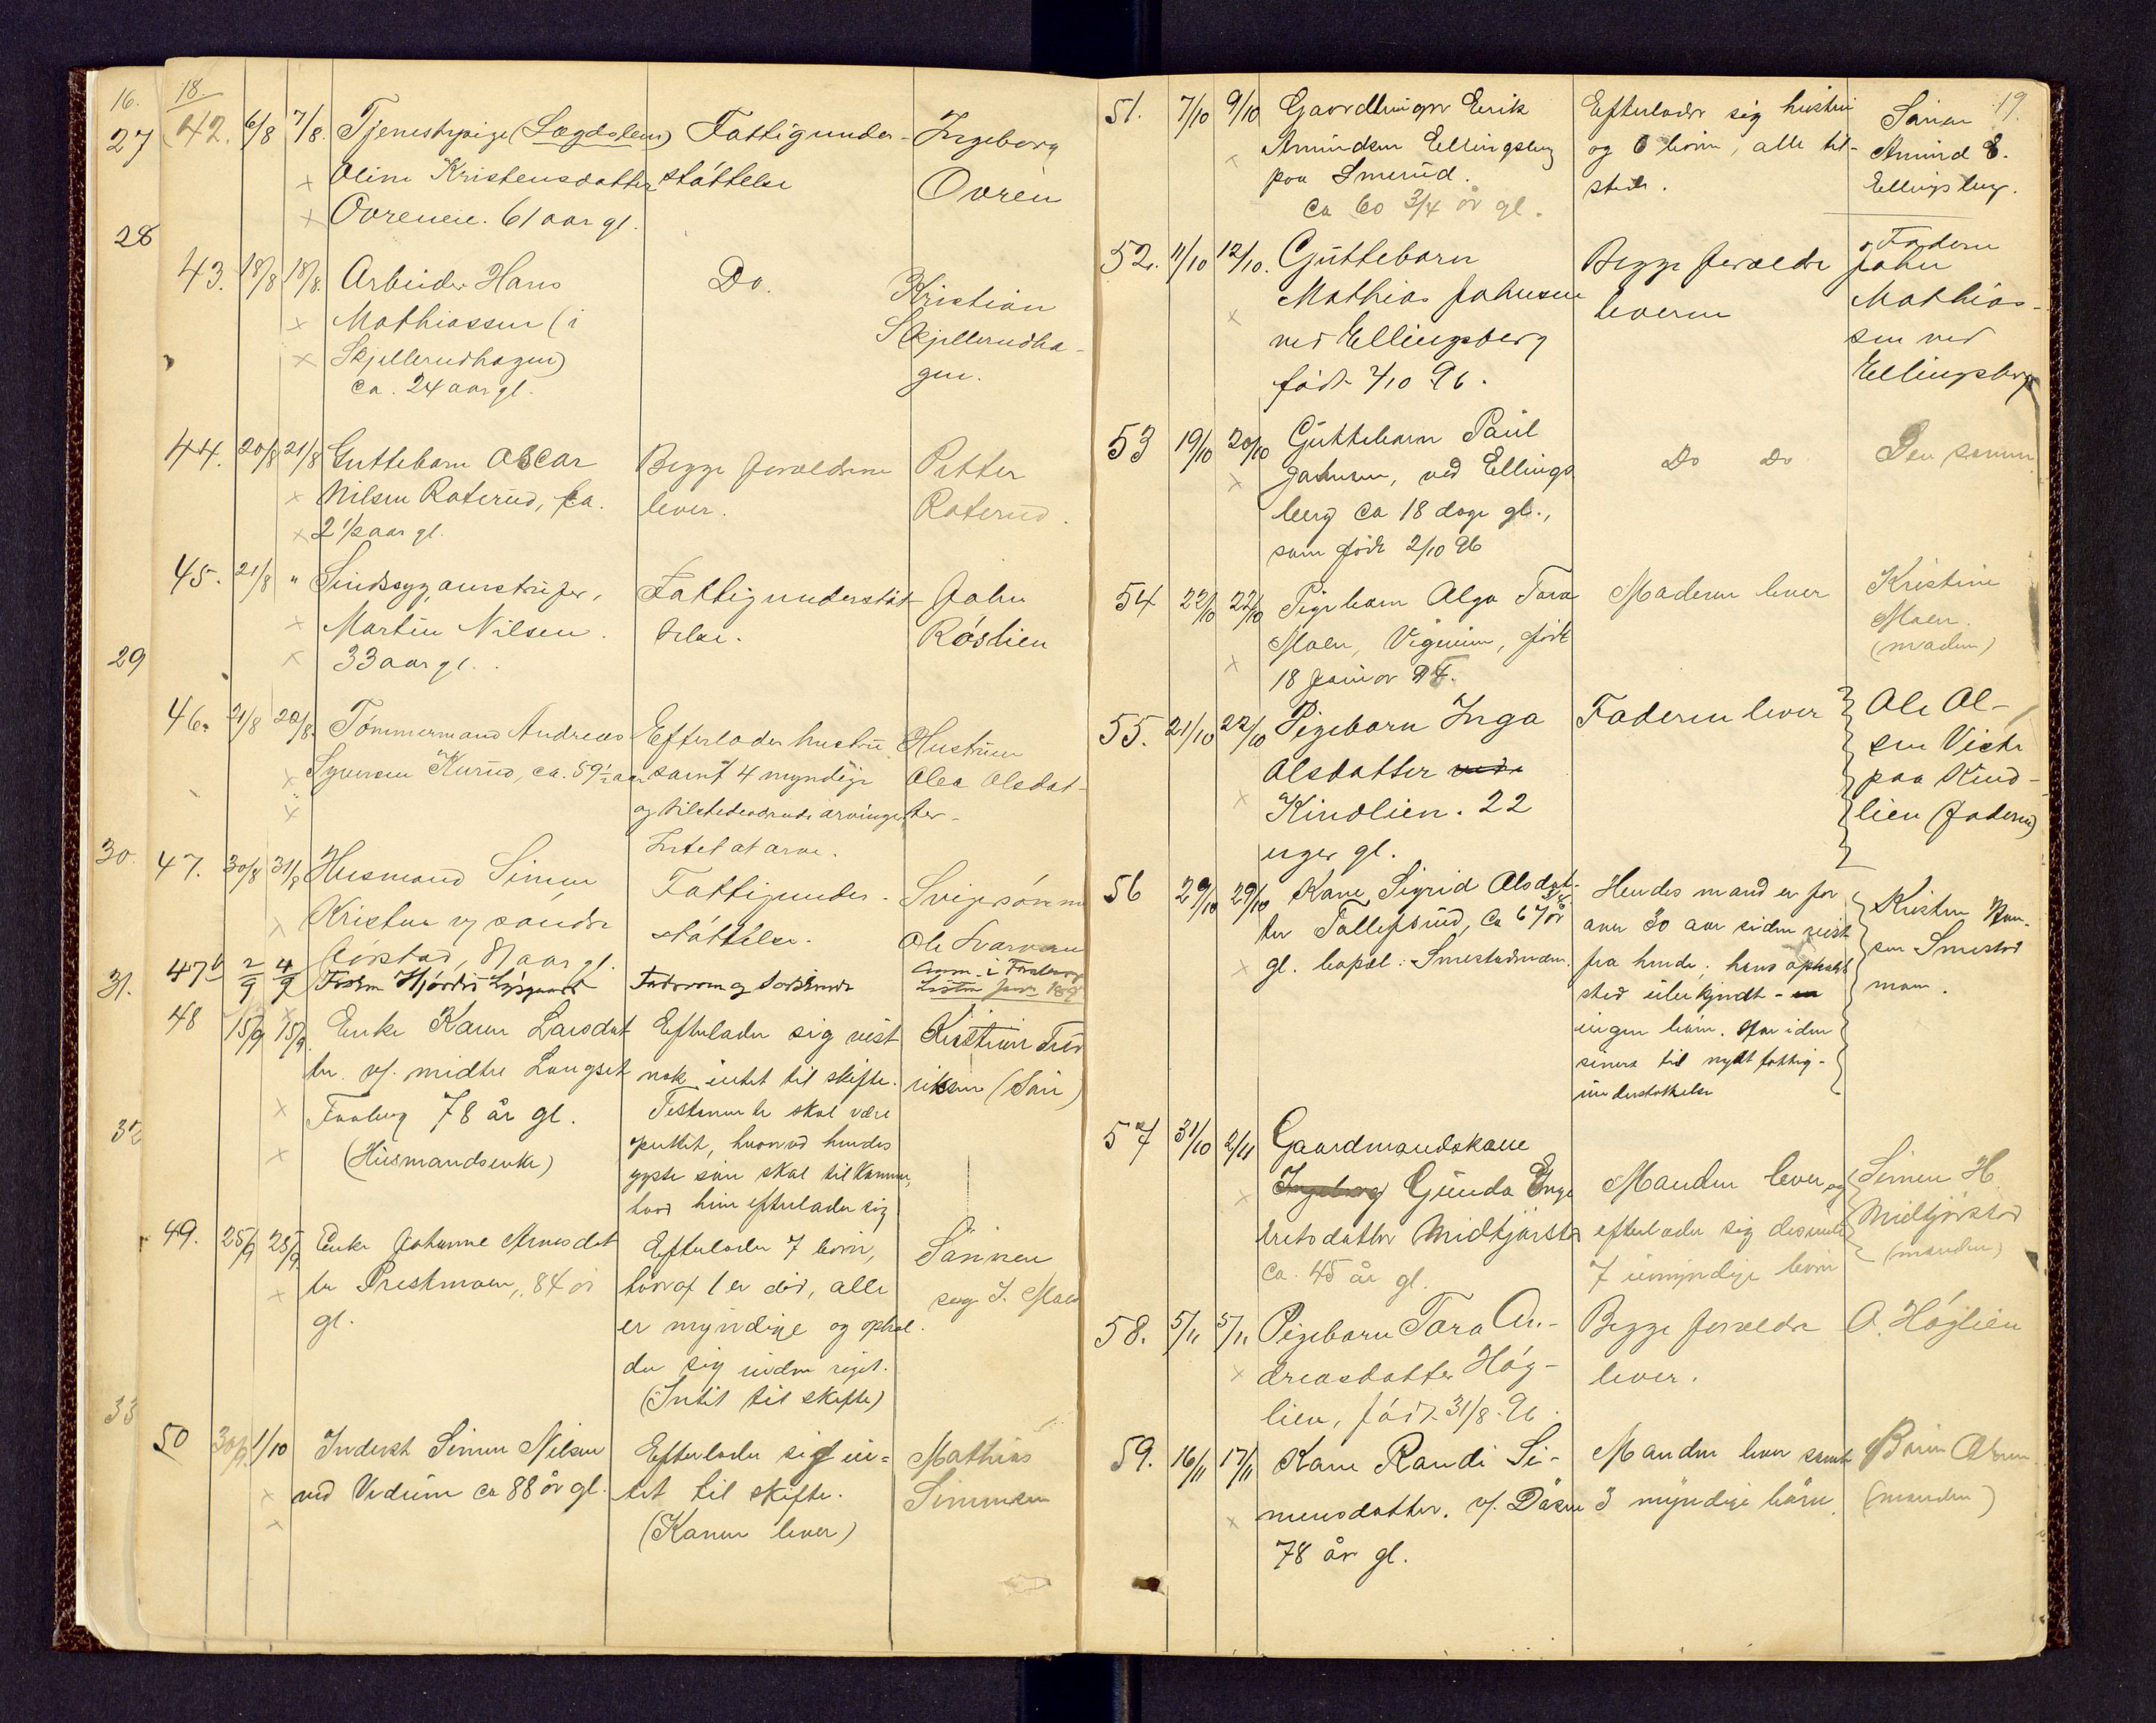 18.
42. 6/8 7/8. Tjenestepige (Lægdslem) Fattigunder- Ingeborg
Oline Kristensdatter støttelse Ovren
Ovreneie. 61 aar gl.
43. 18/8 18/8. Arbeider Hans Do. Kristian
Mathiassen (i Skjellerudha-
Skjellerudhagen) gen.
ca. 24 aar gl.
44. 20/8 21/8 Guttebarn Oscar Begge forældrene Petter
Nilsen Roterud, ca. lever. Roterud.
2 1/2 aar gl.
45. 21/8 " Sindssyg Martin Nilsen. Fattigunderstøt- John
telse. Røslien
33 aar gl.
46. 21/8 20/8. Tømmermand Andreas Efterlader hustru Hustruen
Syversen Kurud, ca. 59 1/2 aar samt 4 myndige Olea Olsdat-
og tilstedeværende arvinger ter.
Intet at arve.
47. 30/8 31/8 Husmand Simen Fattigunder- Svigersønnen
Kristian v/ søndre støttelse. Ole
81 aar gl.
47b 2/9 4/9 Hjørdis
48 15/9 15/9. Enke Karen Larsdat Efterlader sig vist Kristian Fred
ter v/. midtre Longset nok intet til skifte. riksen (Søn)
Faaberg 78 år gl. Testamente skal være
(Husmandsenke) oprettet, hvorved hendes
søn skal tilkomme,
hvad hun efterlader sig
49. 25/9 25/9. Enke Johanne Arnesdat Efterlader 7 børn, Sønnen
ter Prestmoen, 84 år hvoraf 1 er død, alle
gl. er myndige og ophol-
der sig inden riget.
(Intet til skifte)
50 30/9. 1/10 Inderst Simen Nilsen Efterlader sig in- Mathias
ved Vedum ca 88 år gl. tet til skifte. Simensen
(Konen lever)
16.
27
28
29
30.
31.
32
33
19.
51. 7/10 9/10 Gaardbruger Erik Efterlader sig hustru Sønnen
Amundsen Ellingsberg og 6 børn, alle til- Amund E.
paa Smerud. stede. Ellingsberg.
ca 60 3/4 år gl.
52. 11/10 12/10. Guttebarn Begge forældre Faderen
Mathias Johnsen leverer John
ved Ellingsberg Mathias-
født 7/10 96. sen ved
Ellingsberg
53 19/10 20/10 Guttebarn Paul Do Do Den samme
Johnsen, ved Ellings
berg ca 18 dage gl.,
som født 2/10 96
54 22/10 22/10 Pigebarn Olga Tora Moderen lever Kristine
Moen, født Moen.
18 januar 94. (moderen)
55. 21/10 22/10 Pigebarn Inga Faderen lever Ole Ol-
Olsdatter vedr sen
Kindlien. 22 paa Kind-
uger gl. lien (faderen)
56 29/10 29/10 Kone Sigrid Olsdat- Hendes mand er for Kristen
ter Tollefsrud, ca 67 år over 30 aar siden reist sen Smestad
gl. bopæl: Smestadmoen. fra hende; hans opholds moen.
sted ubekjendt - en
ingen børn. Har i den
senere tid nydt fattig-
understøttelse
57 31/10 2/11 Gaardmandskone
Ingeborg Gunda Enge Manden lever, og Simen H.
bretsdatter Midtjørstad efterlader sig desuden Midtjørstad
ca. 45 år gl. 7 umyndige børn (manden)
58. 5/11 5/11 Pigebarn Tora An- Begge forældre A. Høglien
dreasdatter Høg- lever.
lien, født 31/8. 96.
59. 16/11 17/11 Kone Randi Si- Manden lever samt
mensdatter. v/. Dåsen 3 myndige børn. (manden)
78 år gl.